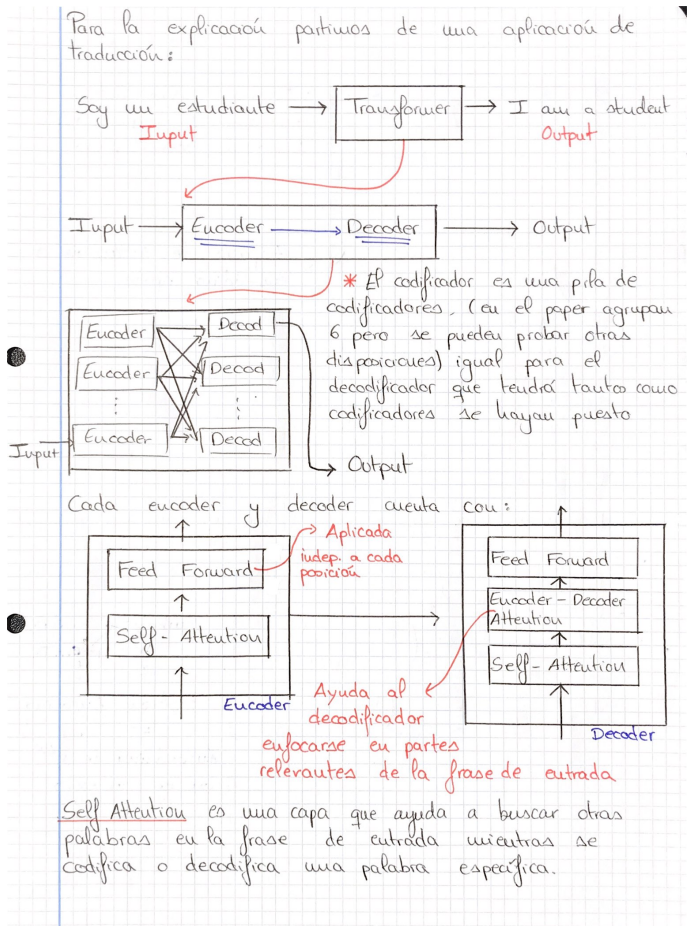 Para la explicación partimos de una aplicación de
traducción:
Soy un estudiante → Transformer → I am a student
Input
Output
Input → Encoder → Decoder → Output
* El codificador es una pila de
codificadores. (en el paper agrupan
6 pero se pueden probar otras
disposiciones) igual para el
decodificador que tendrá tantos como
codificadores se hayan puesto
Encoder
Decod
Encoder
Decod
⋮
⋮
Input
Encoder
Decod
Output
Cada encoder y decoder cuenta con:
Feed Forward
Self-Attention
Encoder
Aplicada
indep. a cada
posición
Feed Forward
Encoder-Decoder
Attention
Self-Attention
Decoder
Ayuda al
decodificador
enfocarse en partes
relevantes de la frase de entrada
Self Attention es una capa que ayuda a buscar otras
palabras en la frase de entrada mientras se
codifica o decodifica una palabra específica.